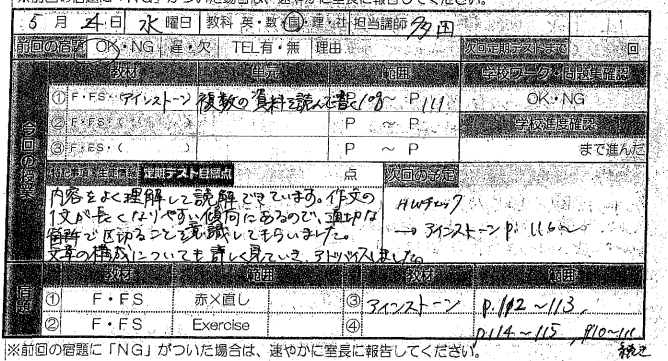 ※前回の宿題に「NG」がついた場合は、速やかに室長に報告してください。
5月24日 水曜日 教科 英・数・国・理・社 担当講師 多田
前回の宿題 OK・NG 遅・欠 TEL有・無 理由 次回定期テストまで 回
教材 単元 範囲 学校ワーク・問題集確認
今回の授業
① F・FS・(アインストーン) 複数の資料を読んで書く P 108 ~ P 111 OK・NG
② F・FS・( ) P ~ P 学校進度確認
③ F・FS・( ) P ~ P まで進んだ
定期テスト目標点 点 次回の予定
内容をよく理解して読解できています。作文の
1文が長くなりやすい傾向にあるので、適切な
箇所で区切ることを意識してもらいました。
文章の構成についても詳しく見ていき、アドバイスしました。
HWチェック
→ アインストーン P. 116~
教材 範囲 教材 範囲
宿題
① F・FS 赤×直し ③ アインストーン p.112~113,
② F・FS Exercise ④ p.114~115, p110~111
※前回の宿題に「NG」がついた場合は、速やかに室長に報告してください。 続き